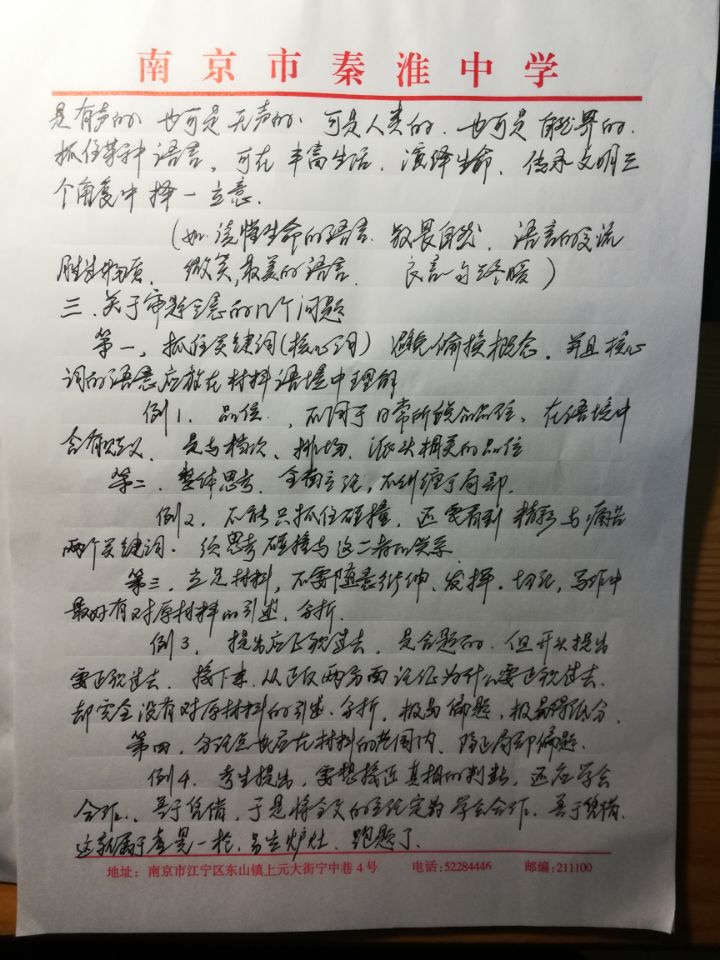 南京市秦淮中学
是有声的、也可是无声的、可是人类的、也可是自然界的、
抓住某种语言,可在丰富生活、演绎生命、传承文明三
个角度中择一立意.
(如:读懂生命的语言、敬畏自然、语言的交流
胜过物质、微笑,最美的语言、良言一句三冬暖)
三、关于审题立意的几个问题
第一,抓住关键词(核心词)避免偷换概念,并且核心
词的语意应放在材料语境中理解
例1、品位,不同于日常所说的品位,在语境中
含有贬义、是与档次、排场、派头相关的品位
第二、整体思考、全面立论,不纠缠于局部.
例2、不能只抓住碰撞,还要看到精彩与痛苦
两个关键词.须思考碰撞与这二者的关系
第三、立足材料,不要随意衍伸、发挥、切题,写作中
最好有对原材料的引述、分析.
例3、提出应正视过去、是合题的、但开头提出
要正视过去、接下来、从正反两方面论证为什么要正视过去、
却完全没有对原材料的引述、分析,极易偏题,极易得低分.
第四、分论点也应在材料的范围内、防止局部偏题.
例4、考生提出,要想接近真相的判断,还应学会
合作、善于凭借,于是将全文的主论定为学会合作、善于凭借、
这就属于虚晃一枪、另立炉灶、跑题了.
地址:南京市江宁区东山镇上元大街宁中巷4号 电话:52284446 邮编:211100